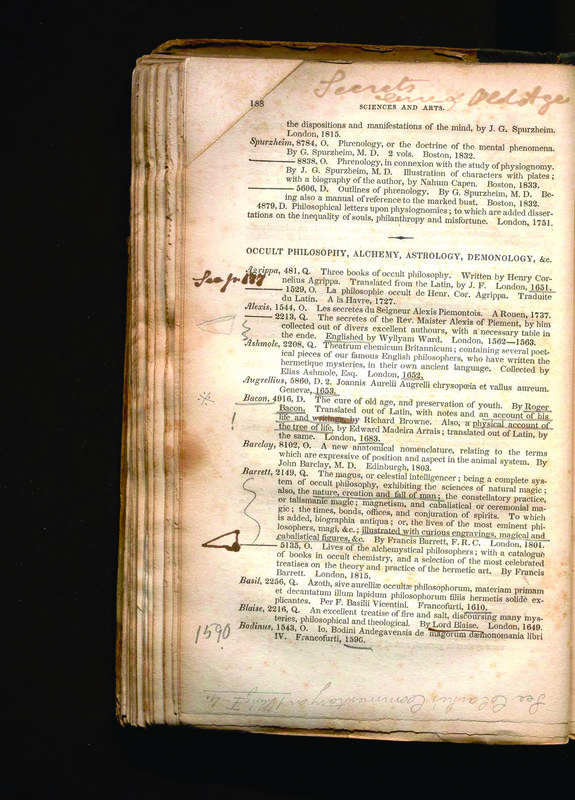 Secrets
Old Age
188
SCIENCES AND ARTS.
the dispositions and manifestations of the mind, by J. G. Spurzheim.
London, 1815.
Spurzheim, 8784, O. Phrenology, or the doctrine of the mental phenomena.
By G. Spurzheim, M. D. 2 vols. Boston, 1832.
——— 8838, O. Phrenology, in connexion with the study of physiognomy.
By J. G. Spurzheim, M. D. Illustration of characters with plates;
with a biography of the author, by Nahum Capen. Boston, 1833.
——— 5606, D. Outlines of phrenology. By G. Spurzheim, M. D. Be-
ing also a manual of reference to the marked bust. Boston, 1832.
4879, D. Philosophical letters upon physiognomies; to which are added disser-
tations on the inequality of souls, philanthropy and misfortune. London, 1751.
OCCULT PHILOSOPHY, ALCHEMY, ASTROLOGY, DEMONOLOGY, &c.
Agrippa, 481, Q. Three books of occult philosophy. Written by Henry Cor-
See p. 187 nelius Agrippa. Translated from the Latin, by J. F. London, 1651.
——— 1529, O. La philosophie occult de Henr. Cor. Agrippa. Traduite
du Latin. A la Havre, 1727.
Alexis, 1544, O. Les secretes du Seigneur Alexis Piemontois. A Rouen, 1737.
——— 2213, Q. The secretes of the Rev. Maister Alexis of Piement, by him
collected out of divers excellent authours, with a necessary table in
the ende. Englished by Wyllyam Ward. London, 1562–1563.
Ashmole, 2208, Q. Theatrum chemicum Britannicum; containing several poet-
ical pieces of our famous English philosophers, who have written the
hermetique mysteries, in their own ancient language. Collected by
Elias Ashmole, Esq. London, 1652.
Augrellius, 5860, D. 2. Joannis Aurelii Augrelli chrysopœia et vallus aureum.
Genevæ, 1653.
Bacon, 4916, D. The cure of old age, and preservation of youth. By Roger
Bacon. Translated out of Latin, with notes and an account of his
life and writings, by Richard Browne. Also, a physical account of
the tree of life, by Edward Madeira Arrais; translated out of Latin, by
the same. London, 1683.
Barclay, 8102, O. A new anatomical nomenclature, relating to the terms
which are expressive of position and aspect in the animal system. By
John Barclay, M. D. Edinburgh, 1803.
Barrett, 2149, Q. The magus, or celestial intelligencer; being a complete sys-
tem of occult philosophy, exhibiting the sciences of natural magic;
also, the nature, creation and fall of man; the constellatory practice,
or talismanic magic; magnetism, and cabalistical or ceremonial ma-
gic; the times, bonds, offices, and conjuration of spirits. To which
is added, biographia antiqua; or, the lives of the most eminent phi-
losophers, magi, &c.; illustrated with curious engravings, magical and
cabalistical figures, &c. By Francis Barrett, F. R. C. London, 1801.
——— 5135, O. Lives of the alchemystical philosophers; with a catalogue
of books in occult chemistry, and a selection of the most celebrated
treatises on the theory and practice of the hermetic art. By Francis
Barrett. London, 1815.
Basil, 2256, Q. Azoth, sive aureliæ occultæ philosophorum, materiam primam
et decantatum illum lapidum philosophorum filiis hermetis solidè ex-
plicantes. Per F. Basilii Vicentini. Francofurti, 1610.
Blaise, 2216, Q. An excellent treatise of fire and salt, discoursing many mys-
teries, philosophical and theological. By Lord Blaise. London, 1649.
Bodinus, 1543, O. Io. Bodini Andegavensis de magorum dæmonomania libri
IV. Francofurti, 1596.
1590